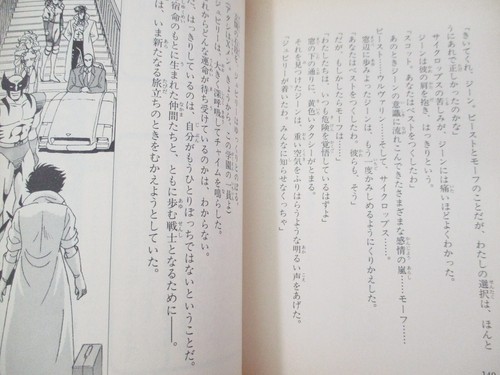 「きいてくれ、ジーン。ビーストとモーフのことだが、わたしの選択は、ほんと
うにあれで正しかったのかな」
サイクロップスの苦しみが、ジーンには痛いほどよくわかった。
ジーンは彼の肩を抱き、はっきりという。
「スコット、あなたはベストをつくしたわ」
あのときジーンの意識に流れこんできたさまざまな感情の嵐……モーフ……
ビースト……ウルヴァリン……そして、サイクロップス……。
窓辺に歩みよったジーンは、もう一度かみしめるようにくりかえした。
「あなたはベストをつくしたわ。彼らも、そう」
「だが、もしかしたらモーフは……」
「わたしたちは、いつも危険を覚悟しているはずよ」
窓の下の通りに、黄色いタクシーがとまる。
それを見つけたジーンは、重い空気をふりはらうような明るい声をあげた。
「ジュビリーが着いたわ。みんなに知らせなくっちゃ」
この学園の一員よ」
ジュビリーは、大きく深呼吸してチャイムを鳴らした。
れからどんな運命が待ち受けているのかは、わからない。
だ、はっきりしているのは、自分がもうひとりぼっちではないということだ。
宿命のもとに生まれた仲間たちと、ともに歩む戦士となるために――。
は、いま新たなる旅立ちのときをむかえようとしていた。